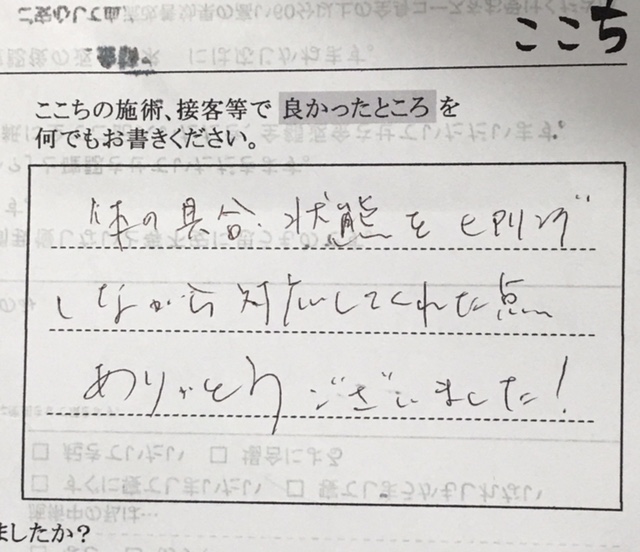 ここち
ここちの施術、接客等で 良かったところ を
何でもお書きください。
体の具合、状態をヒアリング
しながら対応してくれた点
ありがとうございました!
ましたか?